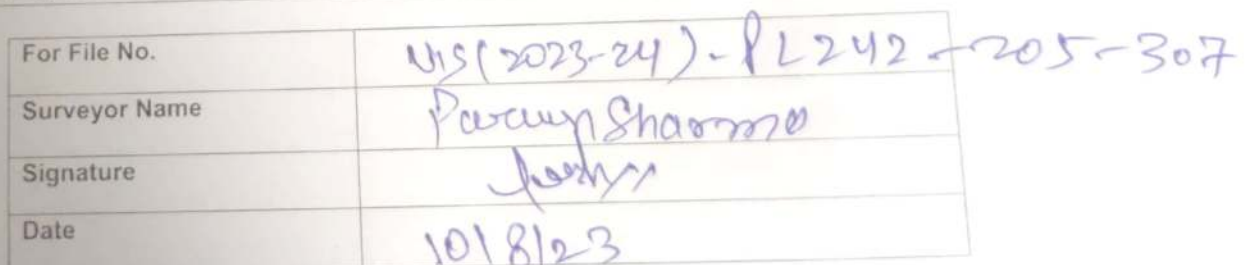 For File No. VIS(2023-24)-PL242-205-307
Surveyor Name Sharma
Signature
Date 10/8/23